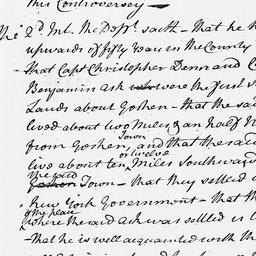 this Controversy —
The 2d Int. the Depft. saith – that he h
upwards of fifty Years in the County
– that Capt Christopher Denn and C
Benjamin ask were the first
Lands about Goshen – that the sai
lived about two Miles & an half N
Town
from Goshen, and that the sai
or twelve
live about ten Miles Southwa
the said
Goshen Town – that they settled
New York Government – that th
of the place
where the said ask was settled is
– that he is well acquainted with the